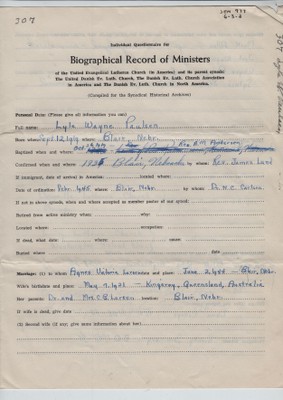 307
Individual Questionnaire for
Biographical Record of Ministers
of the United Evangelical Lutheran Church (in America) and its parent synods:
The United Danish Ev. Luth. Church, The Danish Ev. Luth. Church Association
in America and The Danish Ev. Luth. Church in North America.
(Compiled for the Synodical Historical Archives)
Personal Data: (Please give all information you can)
Full name: Lyle Wayne Paulsen
Born when: Sept. 12, 1919 where: Blair, Nebr.
Baptized when and where:
Confirmed when and where: Blair, Nebraska by whom: Rev. James Lund
If immigrant, date of arrival in America: located where:
Date of ordination: Febr. 1945 where: Blair, Nebr. by whom: Dr. N.C. Carlsen
If not in above synods, when and where accepted as member pastor of our synod:
Retired from active ministry when: why:
Located where: occupation:
If dead, what date: where: cause:
Buried where: date
Marriage: (1) to whom: Agnes Valeria Larsen date and place: June 2, 1944 - Blair, Nebr.
Wife's birthdate and place: May 9, 1921 - Kingaroy, Queensland, Australia
Her parents: Dr. and Mrs. C.B. Larsen location: Blair, Nebr.
If wife is dead, give date
(2) Second wife (if any) give same information about her: